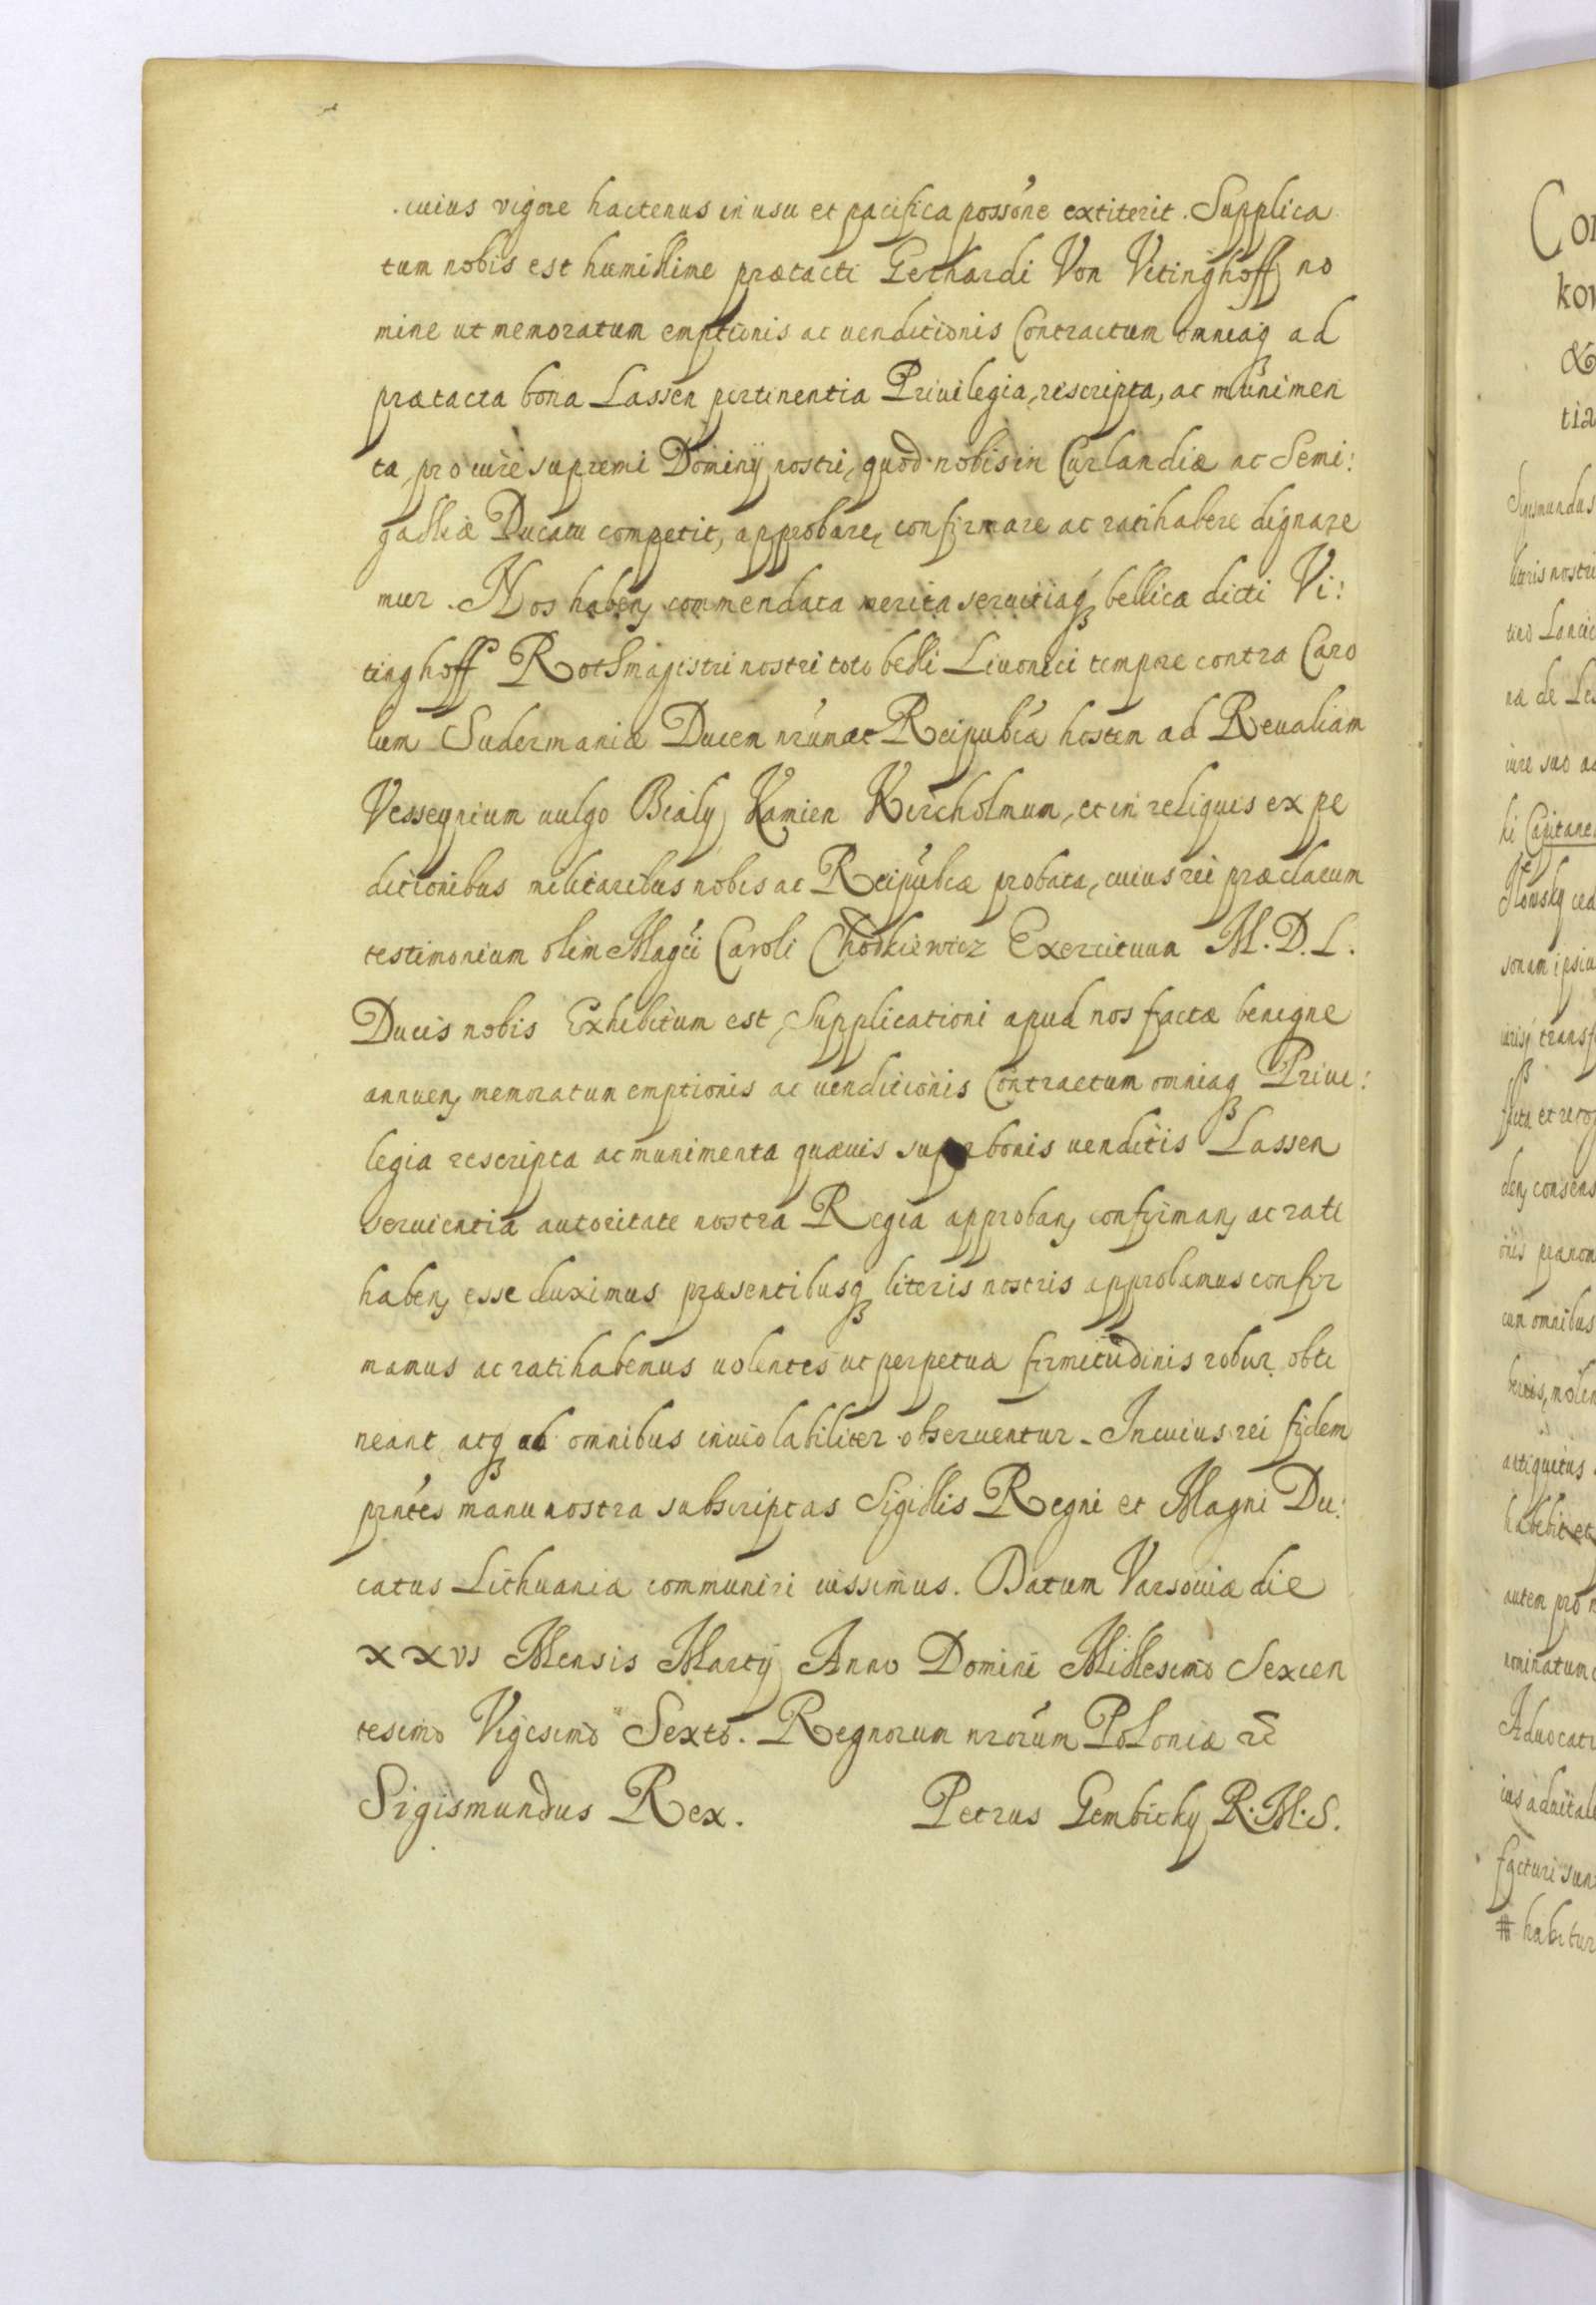 cuius vigore hactenus in usu et pacifica possóne extiterit. Supplica
tum nobis est humillime prætacti Gerhardi Von Vitinghoff no
mine ut memoratum emptionis ac venditionis Contractum omniaq ad
prætacta bona Lassen pertinentia Privilegia, rescripta, ac munimen
ta, pro iure supremi Dominÿ nostri, quod nobis in Curlandiæ ac Semi:
galliæ Ducatu competit, approbare, confirmare ac ratihabere dignare
mur. Nos haben, commendata merita servitiaq bellica dicti Vi:
tinghoff Rothmagistri nostri toto belli Livonici tempore contra Caro
lum Sudermaniæ Ducem nrúm ac Reipubcá hostem ad Revaliam
Vessegnium uulgo Bialy Kamien Kircholmum, et in reliquis expe
ditionibus militaribus nobis ac Reipubcæ probata, cuius rei præclarum
testimonium olim Magci Caroli Chodkiewicz Exercituum M. D. L.
Ducis nobis Exhibitum est, Supplicationi apud nos factæ benigne
annuen, memoratum emptionis ac venditionis Contractum omniaq Privi:
legia rescripta ac munimenta quævis super bonis venditis Lassen
servientia autoritate nostra Regia approban, confirman, ac rati
haben, esse duximus præsentibusq literis nostris approbamus confir
mamus ac ratihabemus volentes ut perpetuæ firmitudinis robur obti
neant atq ab omnibus inviolabiliter observentur. In cuius rei fidem
prntés manu nostra subscriptas Sigillis Regni et Magni Du:
catus Lithuaniæ communiri iussimus. Datum Varsoviæ die
xxvj Mensis Martÿ Anno Domini Millesimo Sexcen
tesimo Vigesimo Sexto. Regnorum nrorúm Poloniæ rc
Sigismundus Rex. Petrus Gembicky R. M. S.